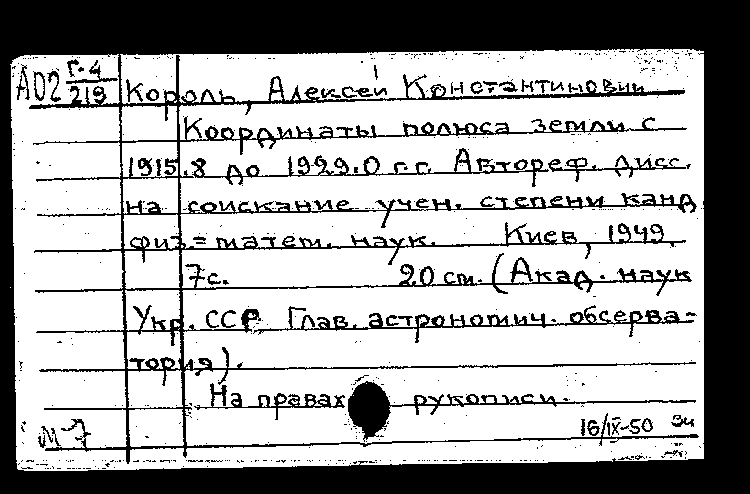 А02 Г-4/219 Король, Алексей Константинович
Координаты полюса земли с
1915.8 до 1929.0 г.г. Автореф. дисс.
на соискание учен. степени канд.
физ=матем. наук. Киев, 1949.
7с. 20 см. (Акад. наук
Укр. ССР Глав. астрономич. обсерва=
тория).
На правах рукописи.
М-7 16/IX-50